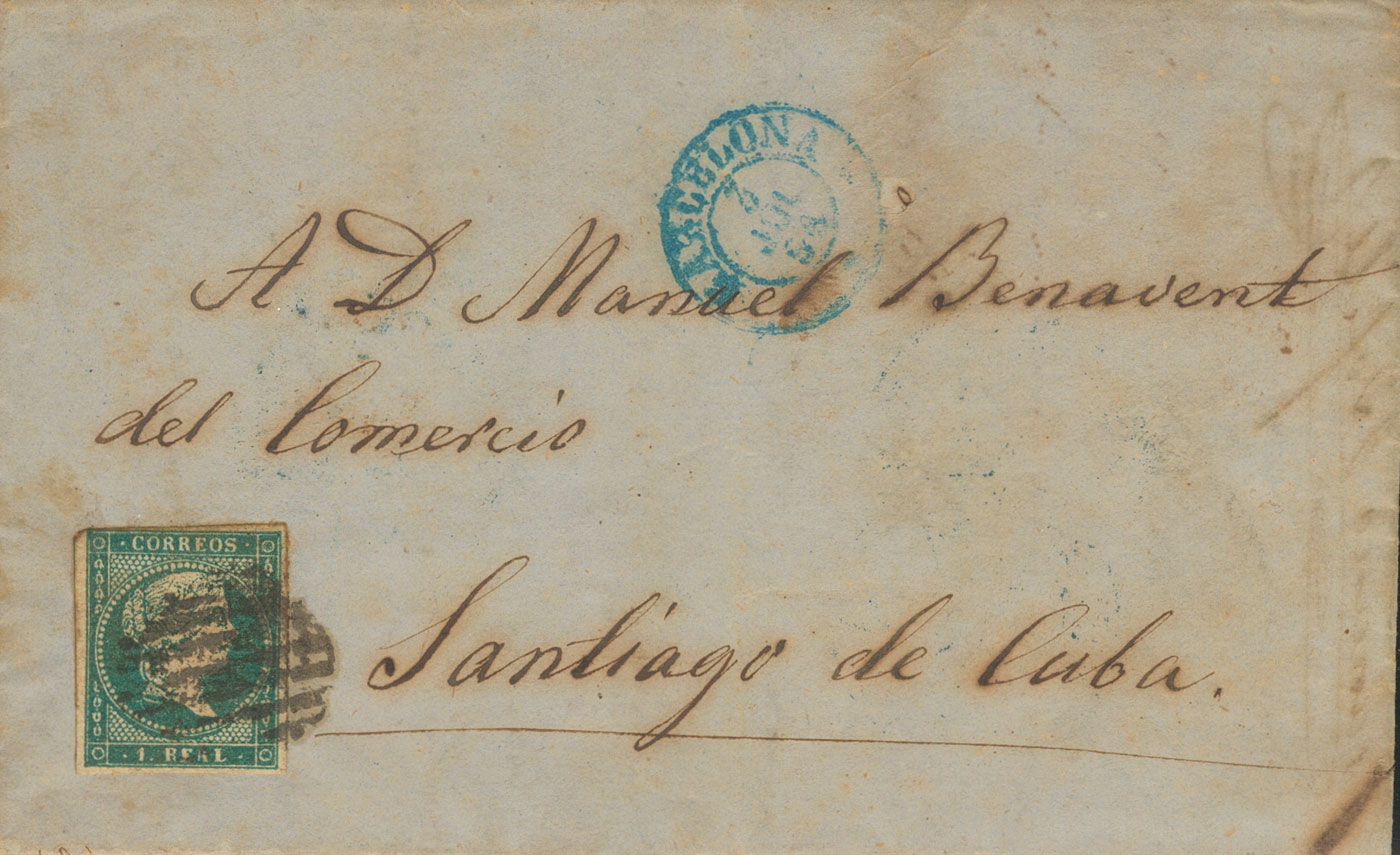 BARCELONA
JUL
A Dn Manuel Benavent
del Comercio
CORREOS
1. REAL
Santiago de Cuba.